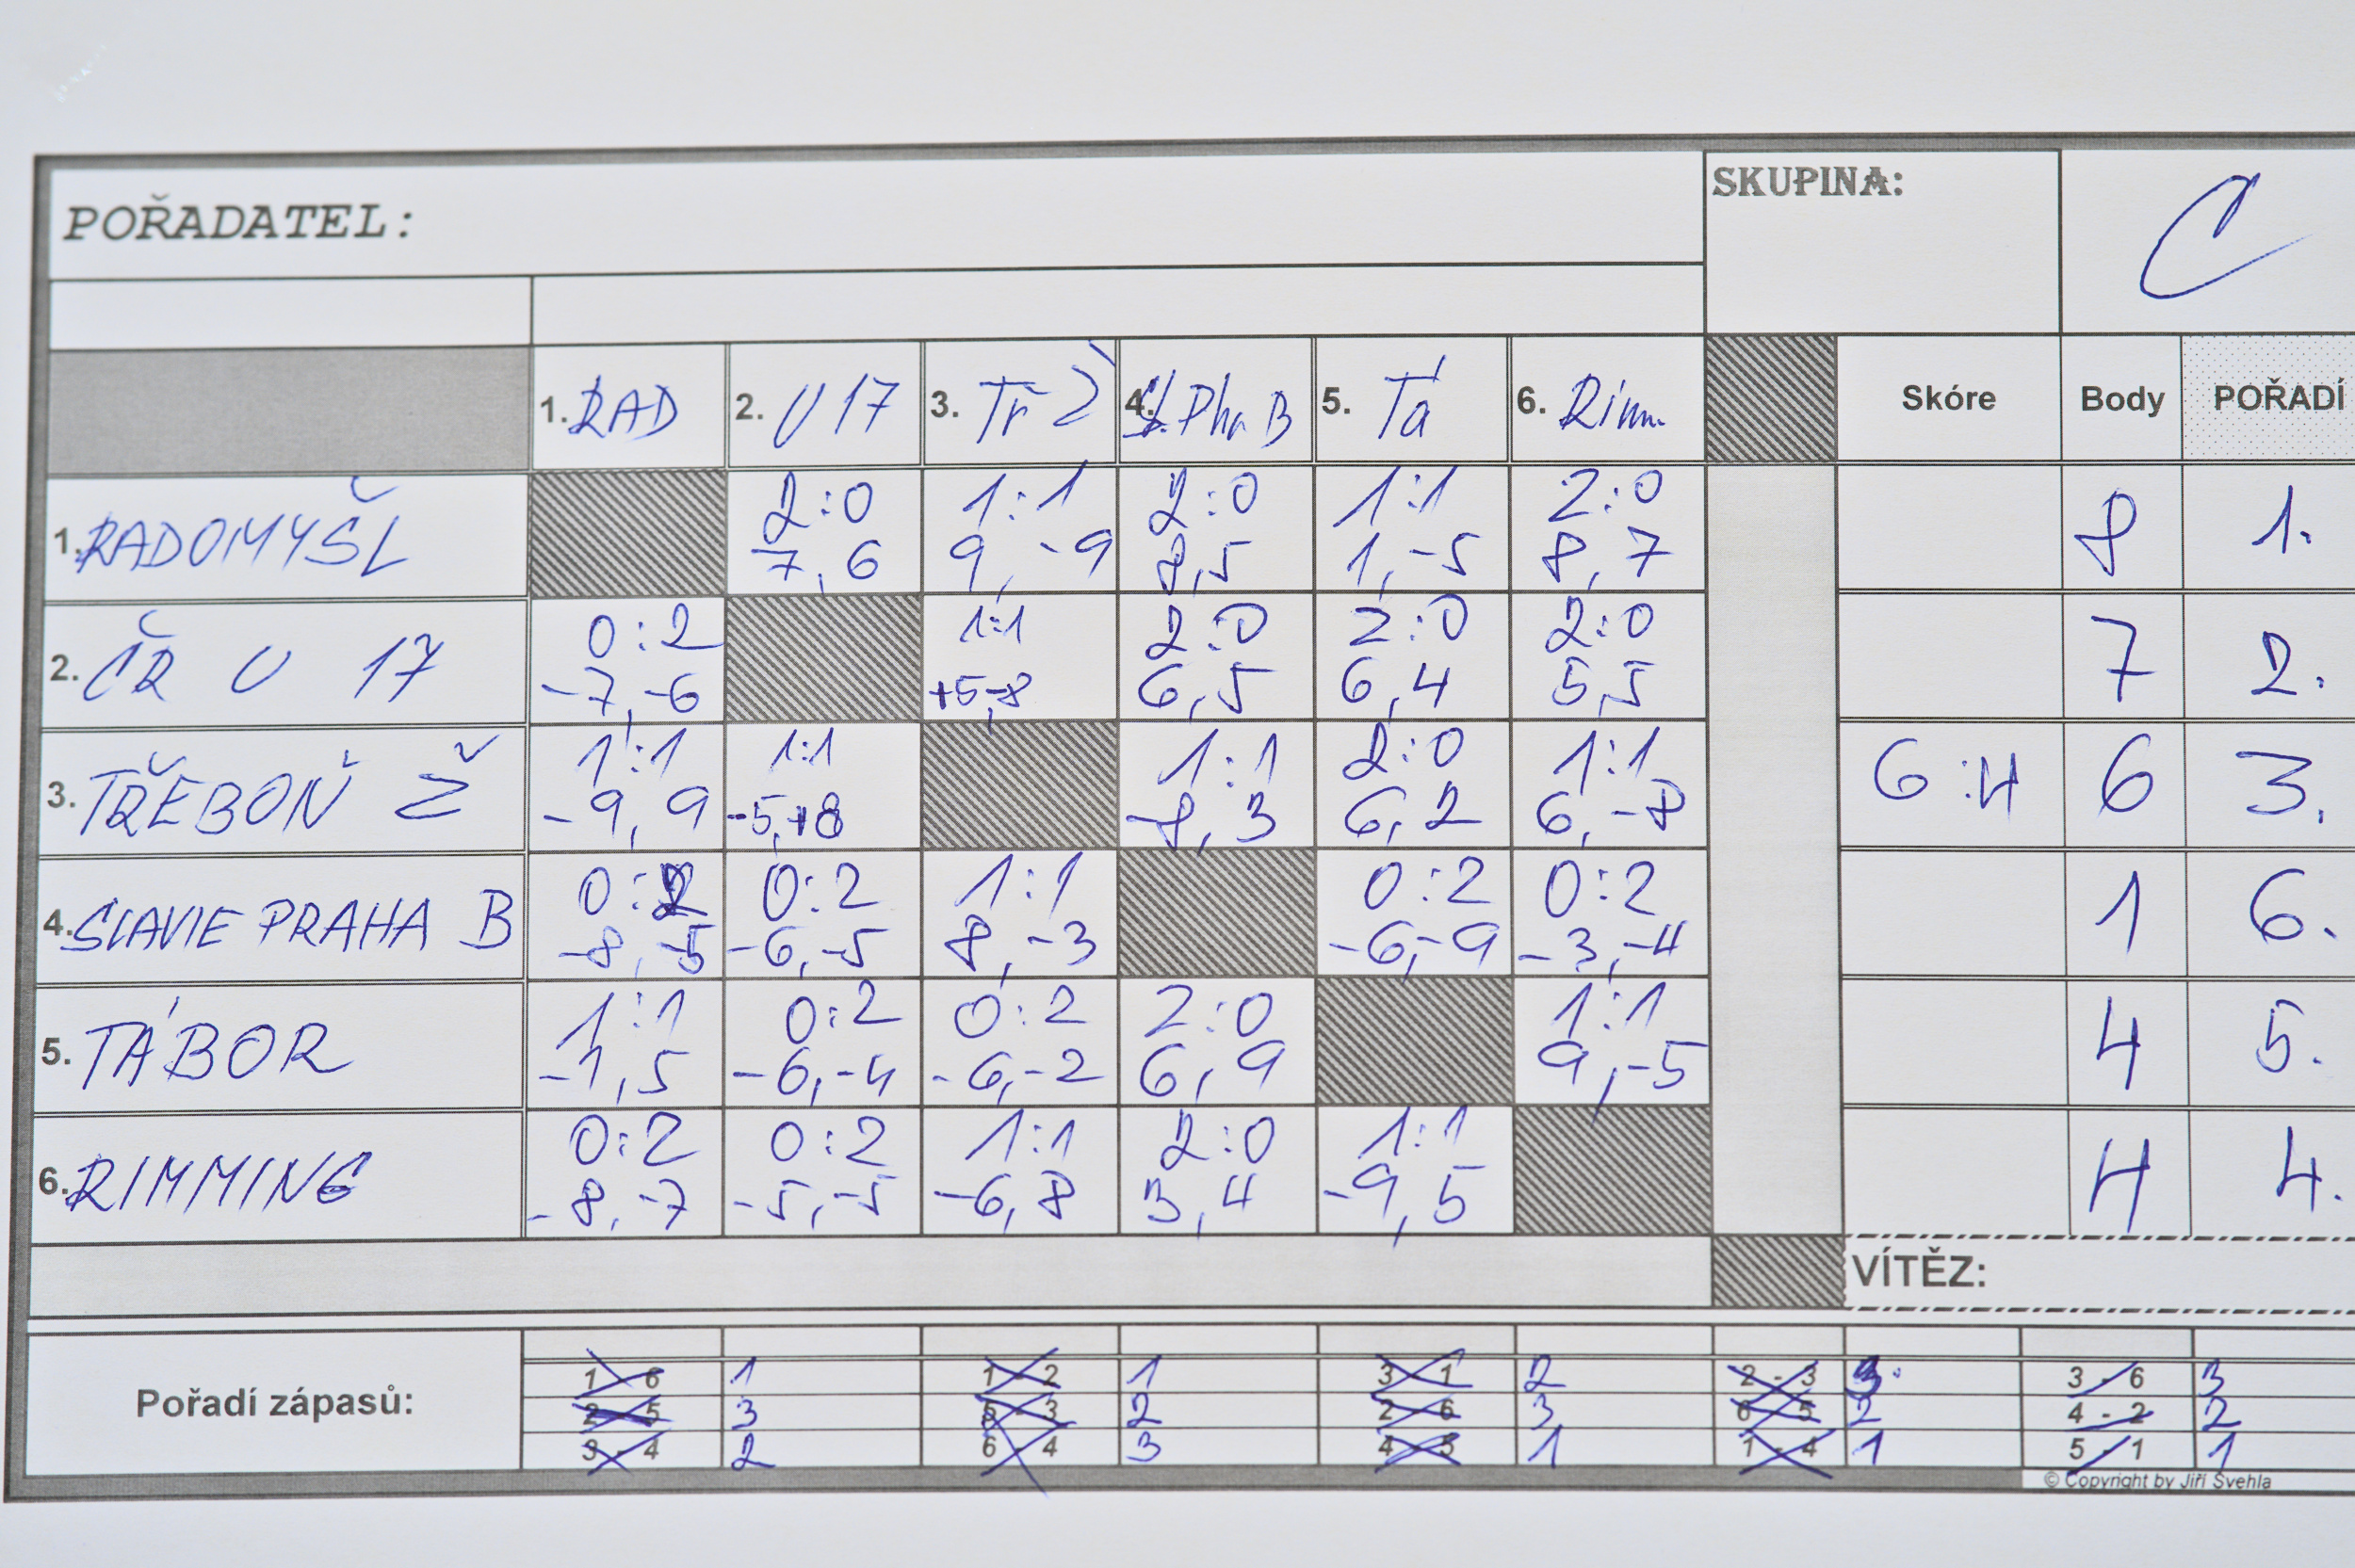 POŘADATEL:
SKUPINA: C
1. RAD 2. U 17 3. Tř Ž 4. Sl. Pha B 5. Tá 6. Rimm. Skóre Body POŘADÍ
2:0 1:1 2:0 1:1 2:0
1. RADOMYŠL 8 1.
7, 6 9, -9 8,5 1, -5 8, 7
0:2 1:1 2:0 2:0 2:0
2. ČR U 17 7 2.
-7, -6 +5,-8 6,5 6,4 5,5
1:1 1:1 1:1 2:0 1:1
3. TŘEBOŇ Ž 6:4 6 3.
-9, 9 -5,+8 -8, 3 6, 2 6, -8
0:2 0:2 1:1 0:2 0:2
4. SLAVIE PRAHA B 1 6.
-8, -5 -6, -5 8, -3 -6,-9 -3,-4
1:1 0:2 0:2 2:0 1:1
5. TÁBOR 4 5.
-1, 5 -6,-4 -6,-2 6, 9 9,-5
0:2 0:2 1:1 2:0 1:1
6. RIMMING 4 4.
-8, -7 -5, -5 -6, 8 3, 4 -9, 5
VÍTĚZ:
Pořadí zápasů:
1 - 6 1 1 - 2 1 3 - 1 2 2 - 3 3. 3 - 6 3
2 - 5 3 5 - 3 2 2 - 6 3 6 - 5 2 4 - 2 2
3 - 4 2 6 - 4 3 4 - 5 1 1 - 4 1 5 - 1 1
© Copyright by Jiří Švehla